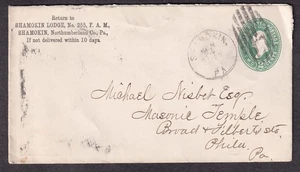 Return to
SHAMOKIN LODGE, No. 255, F. A. M.,
SHAMOKIN, Northumberland Co., Pa.,
If not delivered within 10 days.
PA
Michael Nisbet Esq.
Masonic Temple
Broad & Filbert sts
Phila.
Pa.